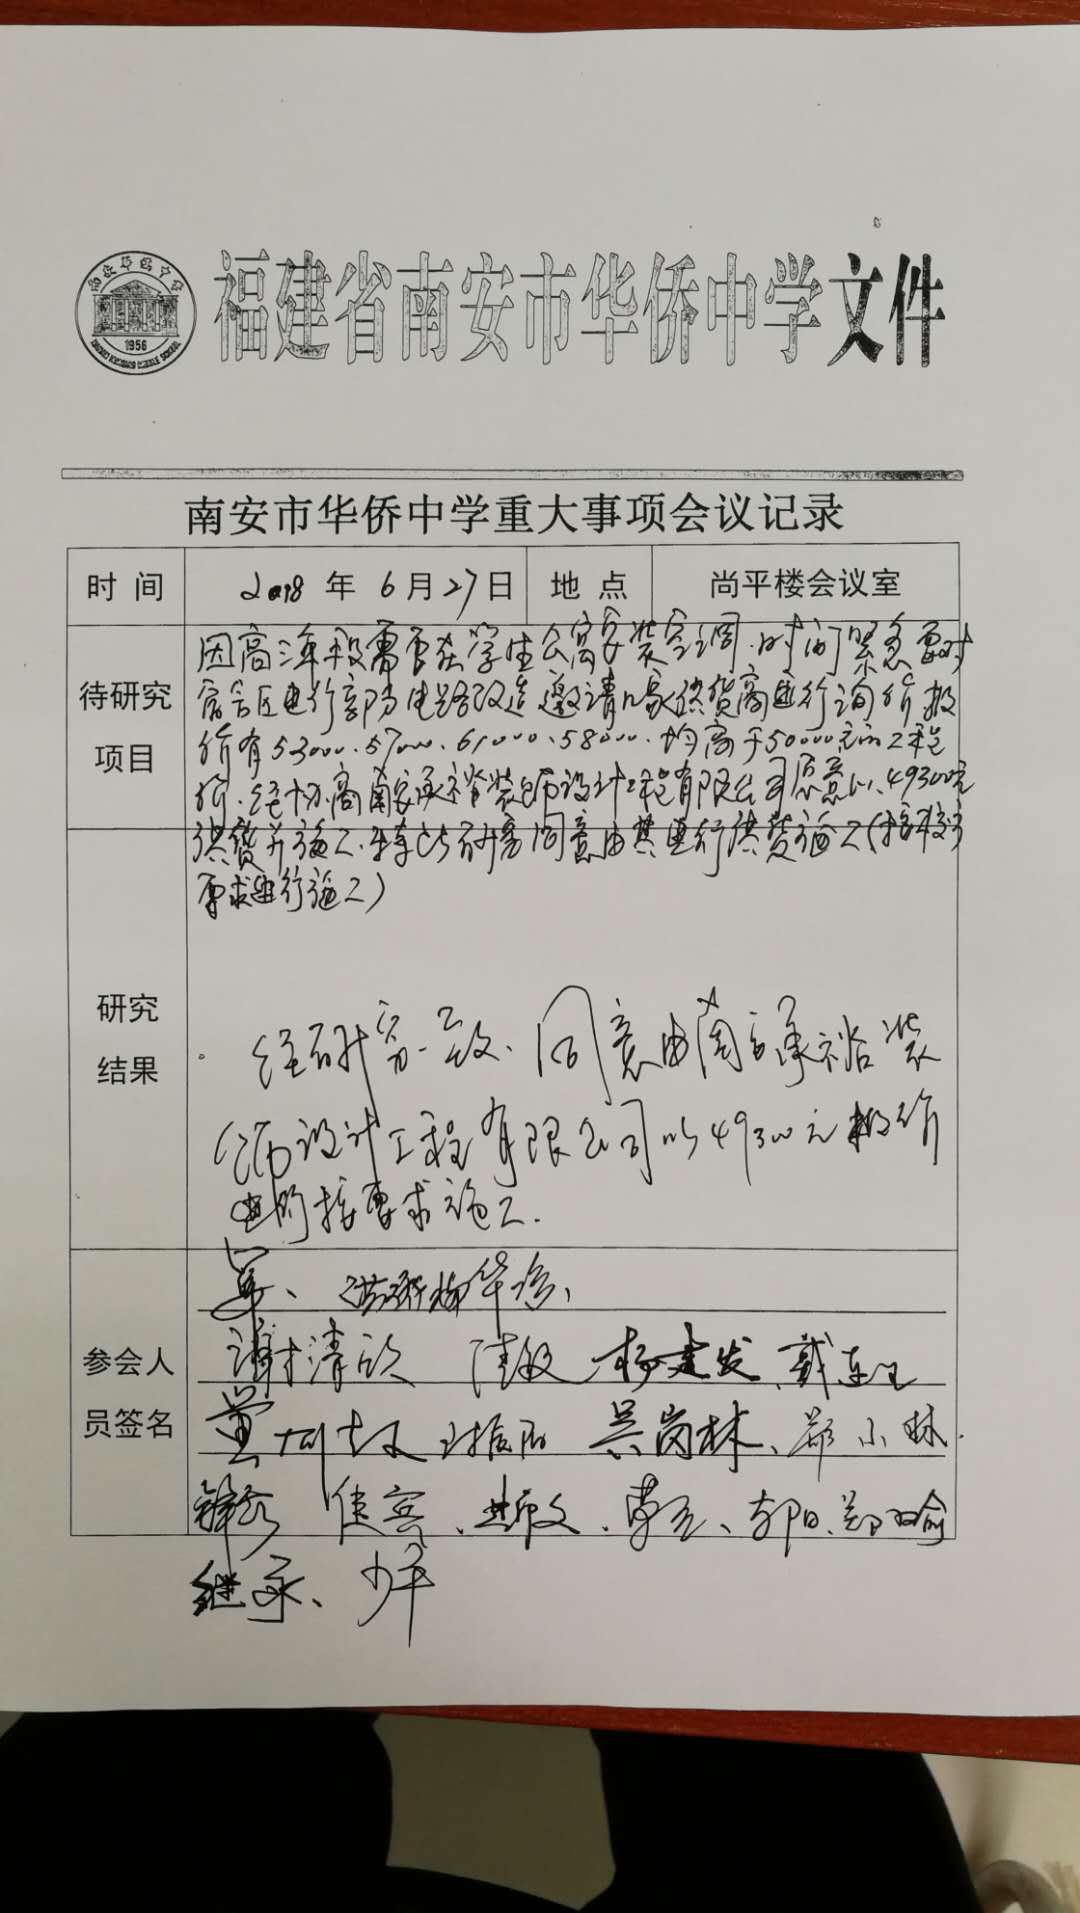 福建省南安市华侨中学文件
1956
南安市华侨中学重大事项会议记录
时间 2018年6月27日 地点 尚平楼会议室
待研究
项目
因高三年段需要在学生公寓安装空调.时间紧急要对
宿舍区进行部分电路改造邀请几家供货商进行询价报
价有53000.57000.61000.58000.均高于50000元的工程
价.经协商南安承裕装饰设计工程有限公司愿意以49300元
供货并施工.特此研究同意由其进行供货施工(按校方
要求进行施工)
研究
结果
经研究一致、同意由南安承裕装
饰设计工程有限公司以49300元报价
进行按要求施工.
参会人
员签名
谢清欣 杨建发
吴岗林、郑小林
继承、少平